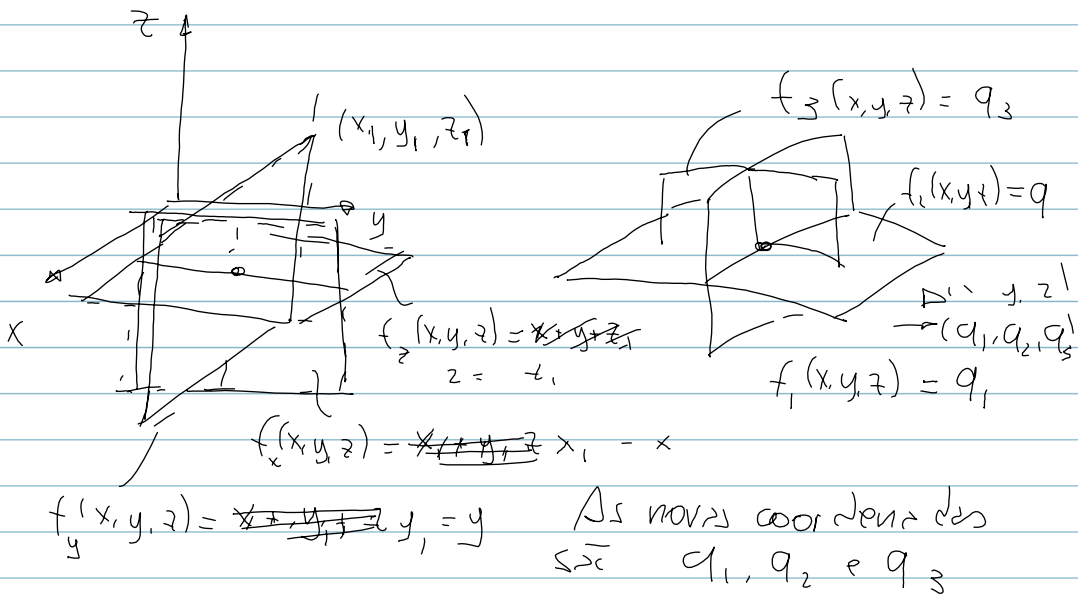 z
(x₁, y₁, z₁)
y
x
f_z(x, y, z) = x + y + z₁
z = z₁
f_x(x, y, z) = x₁ + y₁ z x₁ - x
f_y(x, y, z) = x + y₁ + z y₁ = y
f₃(x, y, z) = q₃
f₂(x, y, z) = q
y, z)
→ (q₁, q₂, q₃)
f₁(x, y, z) = q₁
As novas coordenadas
são q₁, q₂ e q₃